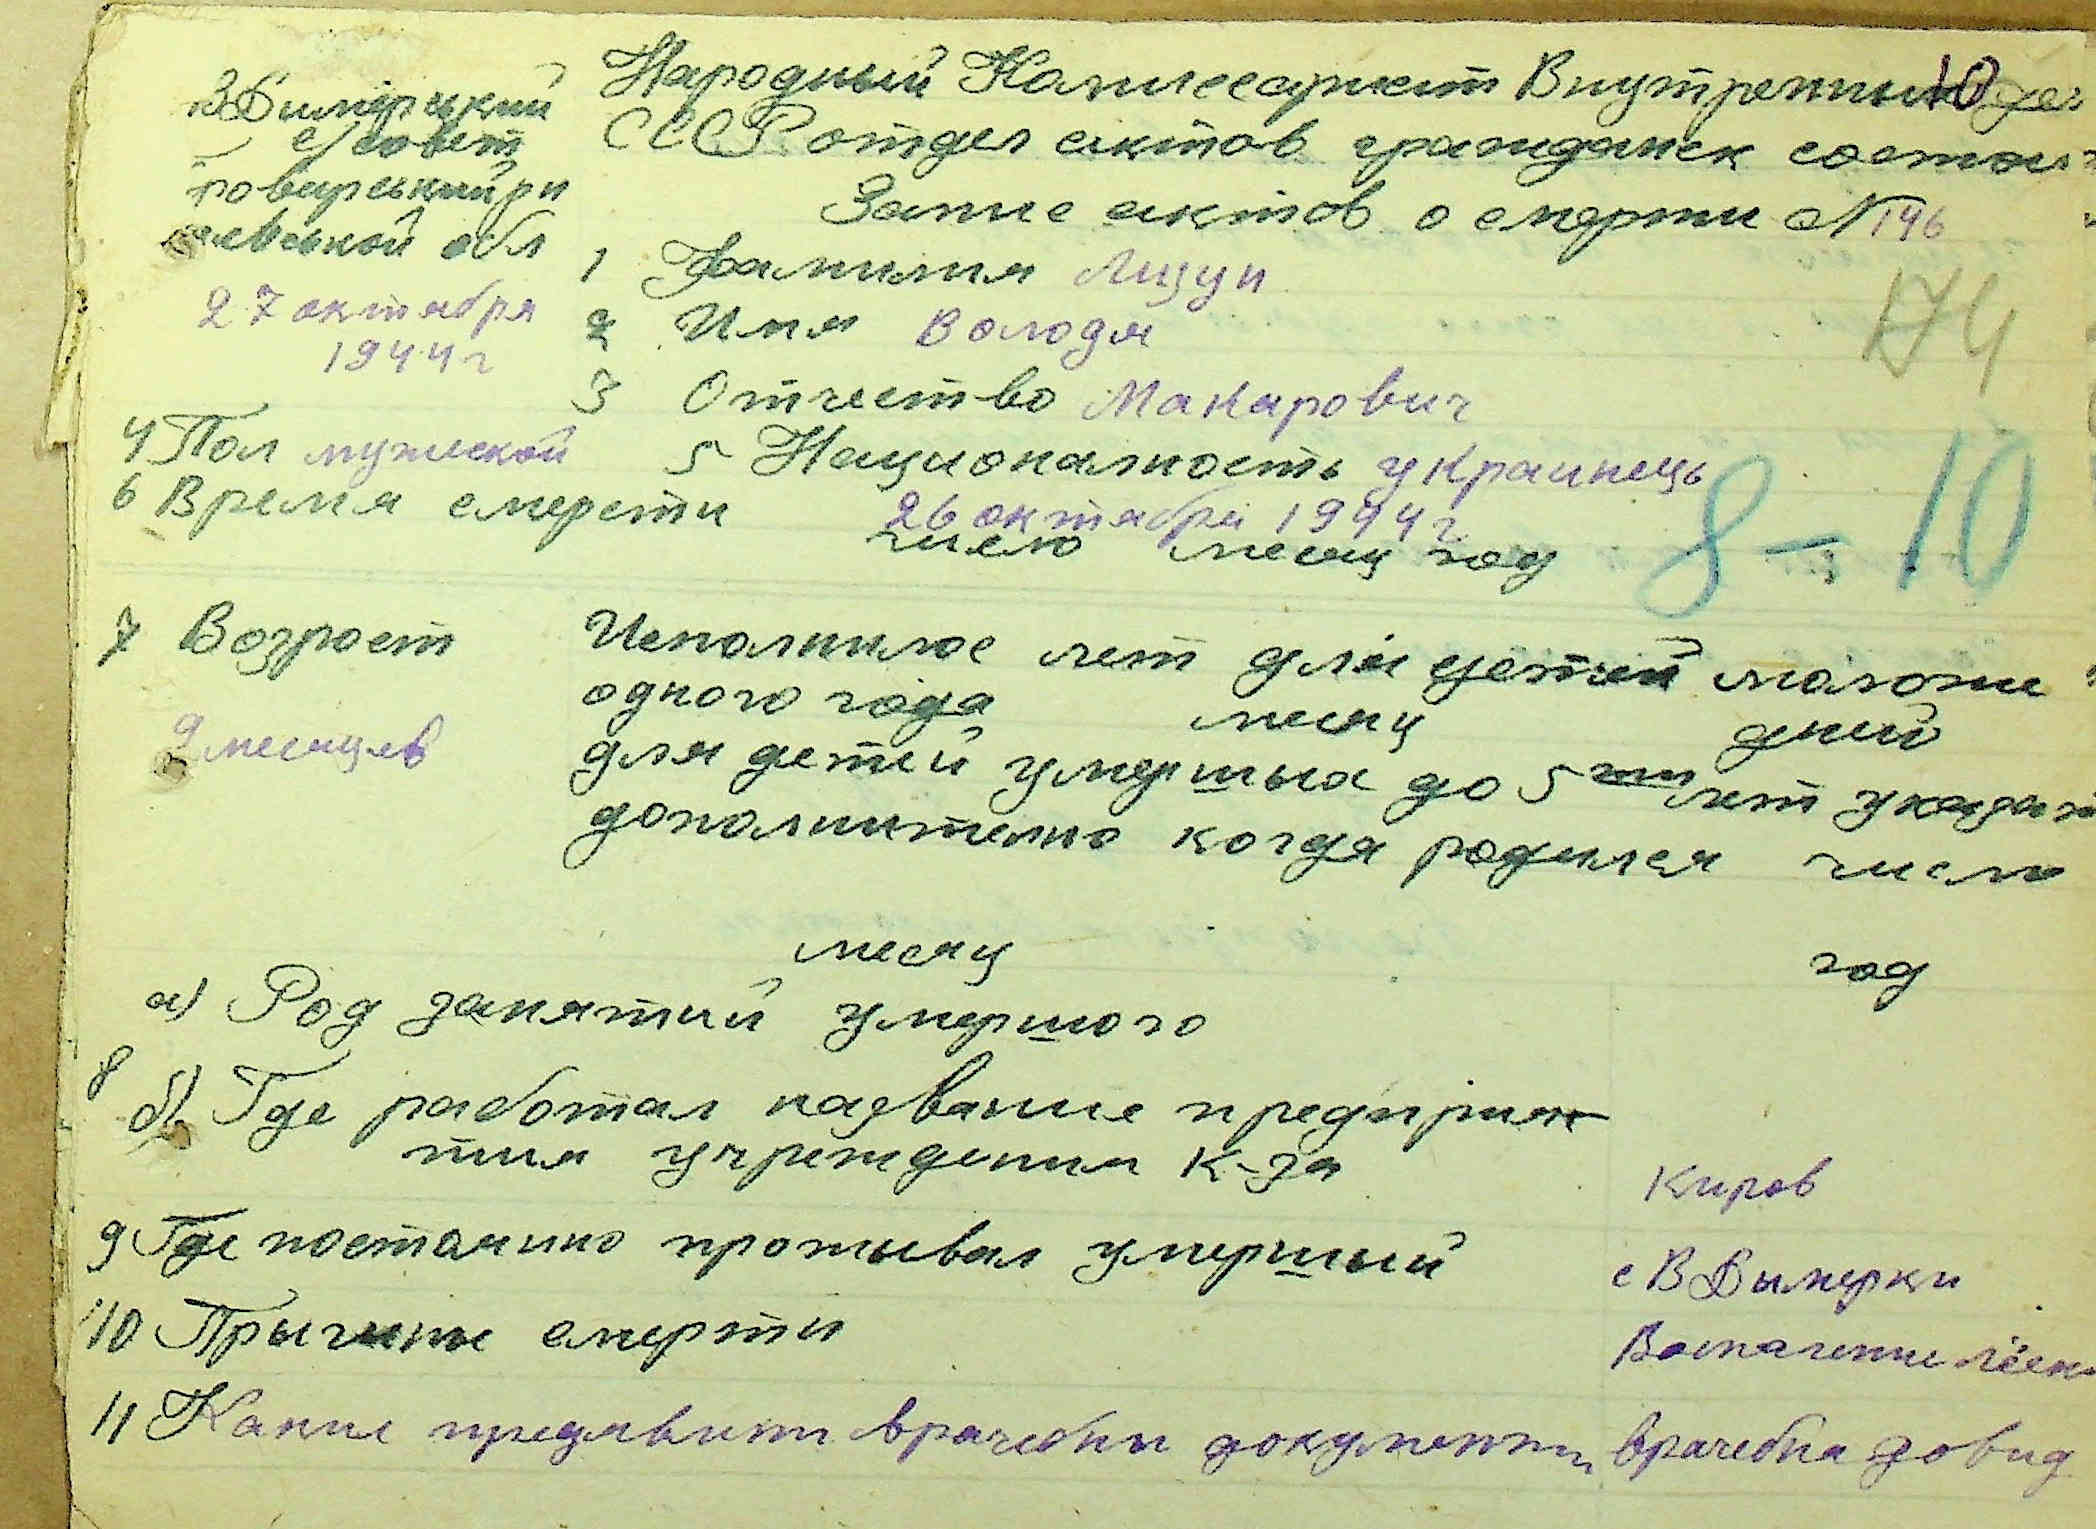 В Димерський
с/совет
Броварський р-н
Киевської обл
27 октября
1944 г
Народный Комиссариат Внутренных дел
10
СССР отдел актов гражданск состоя
Запис актов о смерти №146
174
1 Фамилия Лицун
2 Имя Володя
3 Отчество Макарович
4 Пол мужеской 5 Национальность украинець
6 Время смерсти 26 октября 1944 г
число месяц год
8-10
7 Возраст Исполнилос лет для детей моложе
одного года месяц дней
9 месяцев
для детей умершых до 5 лет указать
дополнително когда родился число
месяц год
а) Род занятий умершого
8
б) Где работал название предприя
тия учреждения к-за Киров
9 Где постоянно проживал умершый с В Дымерки
10 Прычины смерти Воспаление лёгк
11 Какие предявлени врачебни документи врачебна довид